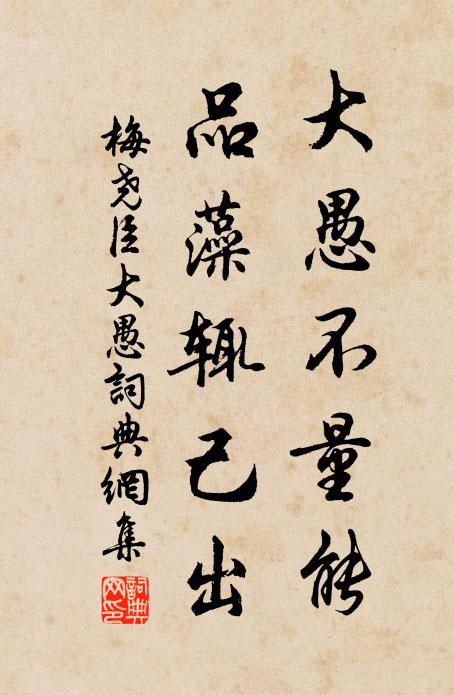 大愚不量能
品藻辄己出
梅尧臣大愚詞典網集
詞典網印